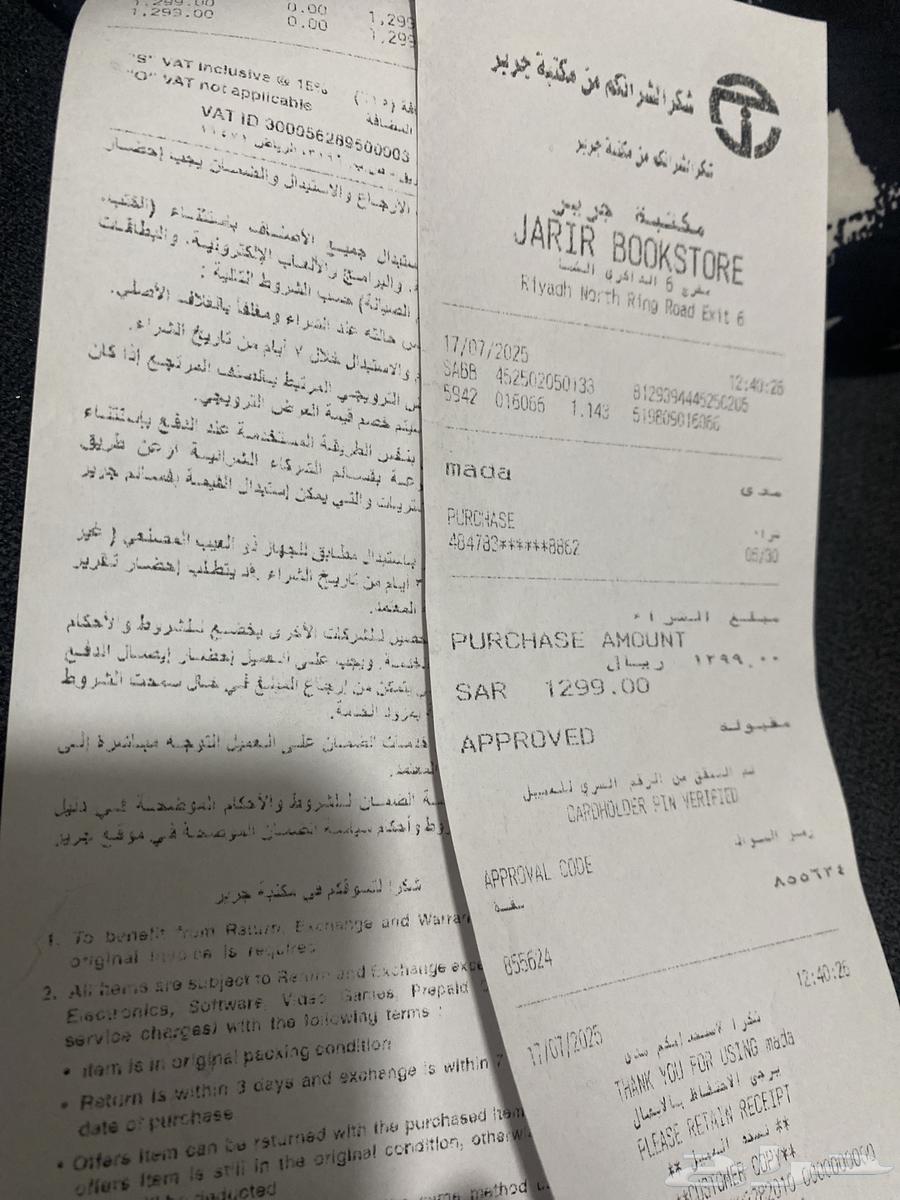 1,299.00 0.00 1,299
1,299.00 0.00 1,299
"S" VAT Inclusive @ 15%
"O" VAT not applicable
المضافة
VAT ID 300056289500003
الارجاع والاستبدال والضمان يجب إحضار
ستبدال جميع الأصناف باستثناء (الكتب،
والبرامج والألعاب الإلكترونية، والبطاقات
الصيانة) حسب الشروط التالية :
حالته عند الشراء ومغلفا بالغلاف الأصلي.
والاستبدال خلال ٧ أيام من تاريخ الشراء.
الترويجي المرتبط بالصنف المرتجع إذا كان
سيتم خصم قيمة العرض الترويجي.
بنفس الطريقة المستخدمة عند الدفع باستثناء
بقسائم الشركاء الشرائية او عن طريق
والتي يمكن إستبدال القيمة بقسائم جرير
باستبدال مطابق للجهاز ذو العيب المصنعي ( غير
أيام من تاريخ الشراء وقد يتطلب إحضار تقرير
المعتمد.
للشركات الأخرى يخضع للشروط والأحكام
ويجب على العميل إحضار إيصال الدفع
يتمكن من إرجاع المبلغ في حال سمحت الشروط
بمزود الخدمة.
خدمات الضمان على العميل التوجه مباشرة إلى
المعتمد.
الضمان للشروط والأحكام الموضحة في دليل
وأحكام سياسة الضمان الموضحة في موقع جرير
شكرا لتسوقكم في مكتبة جرير
1. To benefit from Return, Exchange and Warran
original invoice is required
2. All items are subject to Return and Exchange exce
Electronics, Software, Video Games, Prepaid
service charges) with the following terms :
• Item is in original packing condition
• Return is within 3 days and exchange is within 7
date of purchase
• Offers item can be returned with the purchased item
offers item is still in the original condition, otherwi
be deducted
same method
شكرا لشرائكم من مكتبة جرير
شكرا لشرائكم من مكتبة جرير
مكتبة جرير
JARIR BOOKSTORE
مخرج 6 الدائري الشما
Riyadh North Ring Road Exit 6
17/07/2025 12:40:26
SABB 452502050133 8129394445250205
5942 016066 1.143 519809016066
mada مدى
PURCHASE شراء
484783******8862 06/30
مبلغ الشراء
PURCHASE AMOUNT
١٢٩٩.٠٠ ريال
SAR 1299.00
APPROVED مقبولة
تم التحقق من الرقم السري للعميل
CARDHOLDER PIN VERIFIED
APPROVAL CODE
٨٥٥٦٢٤
855624
17/07/2025 12:40:26
شكرا لاستخدامكم مدى
THANK YOU FOR USING mada
يرجى الاحتفاظ بالايصال
PLEASE RETAIN RECEIPT
** نسخة العميل **
**CUSTOMER COPY**
0000000000